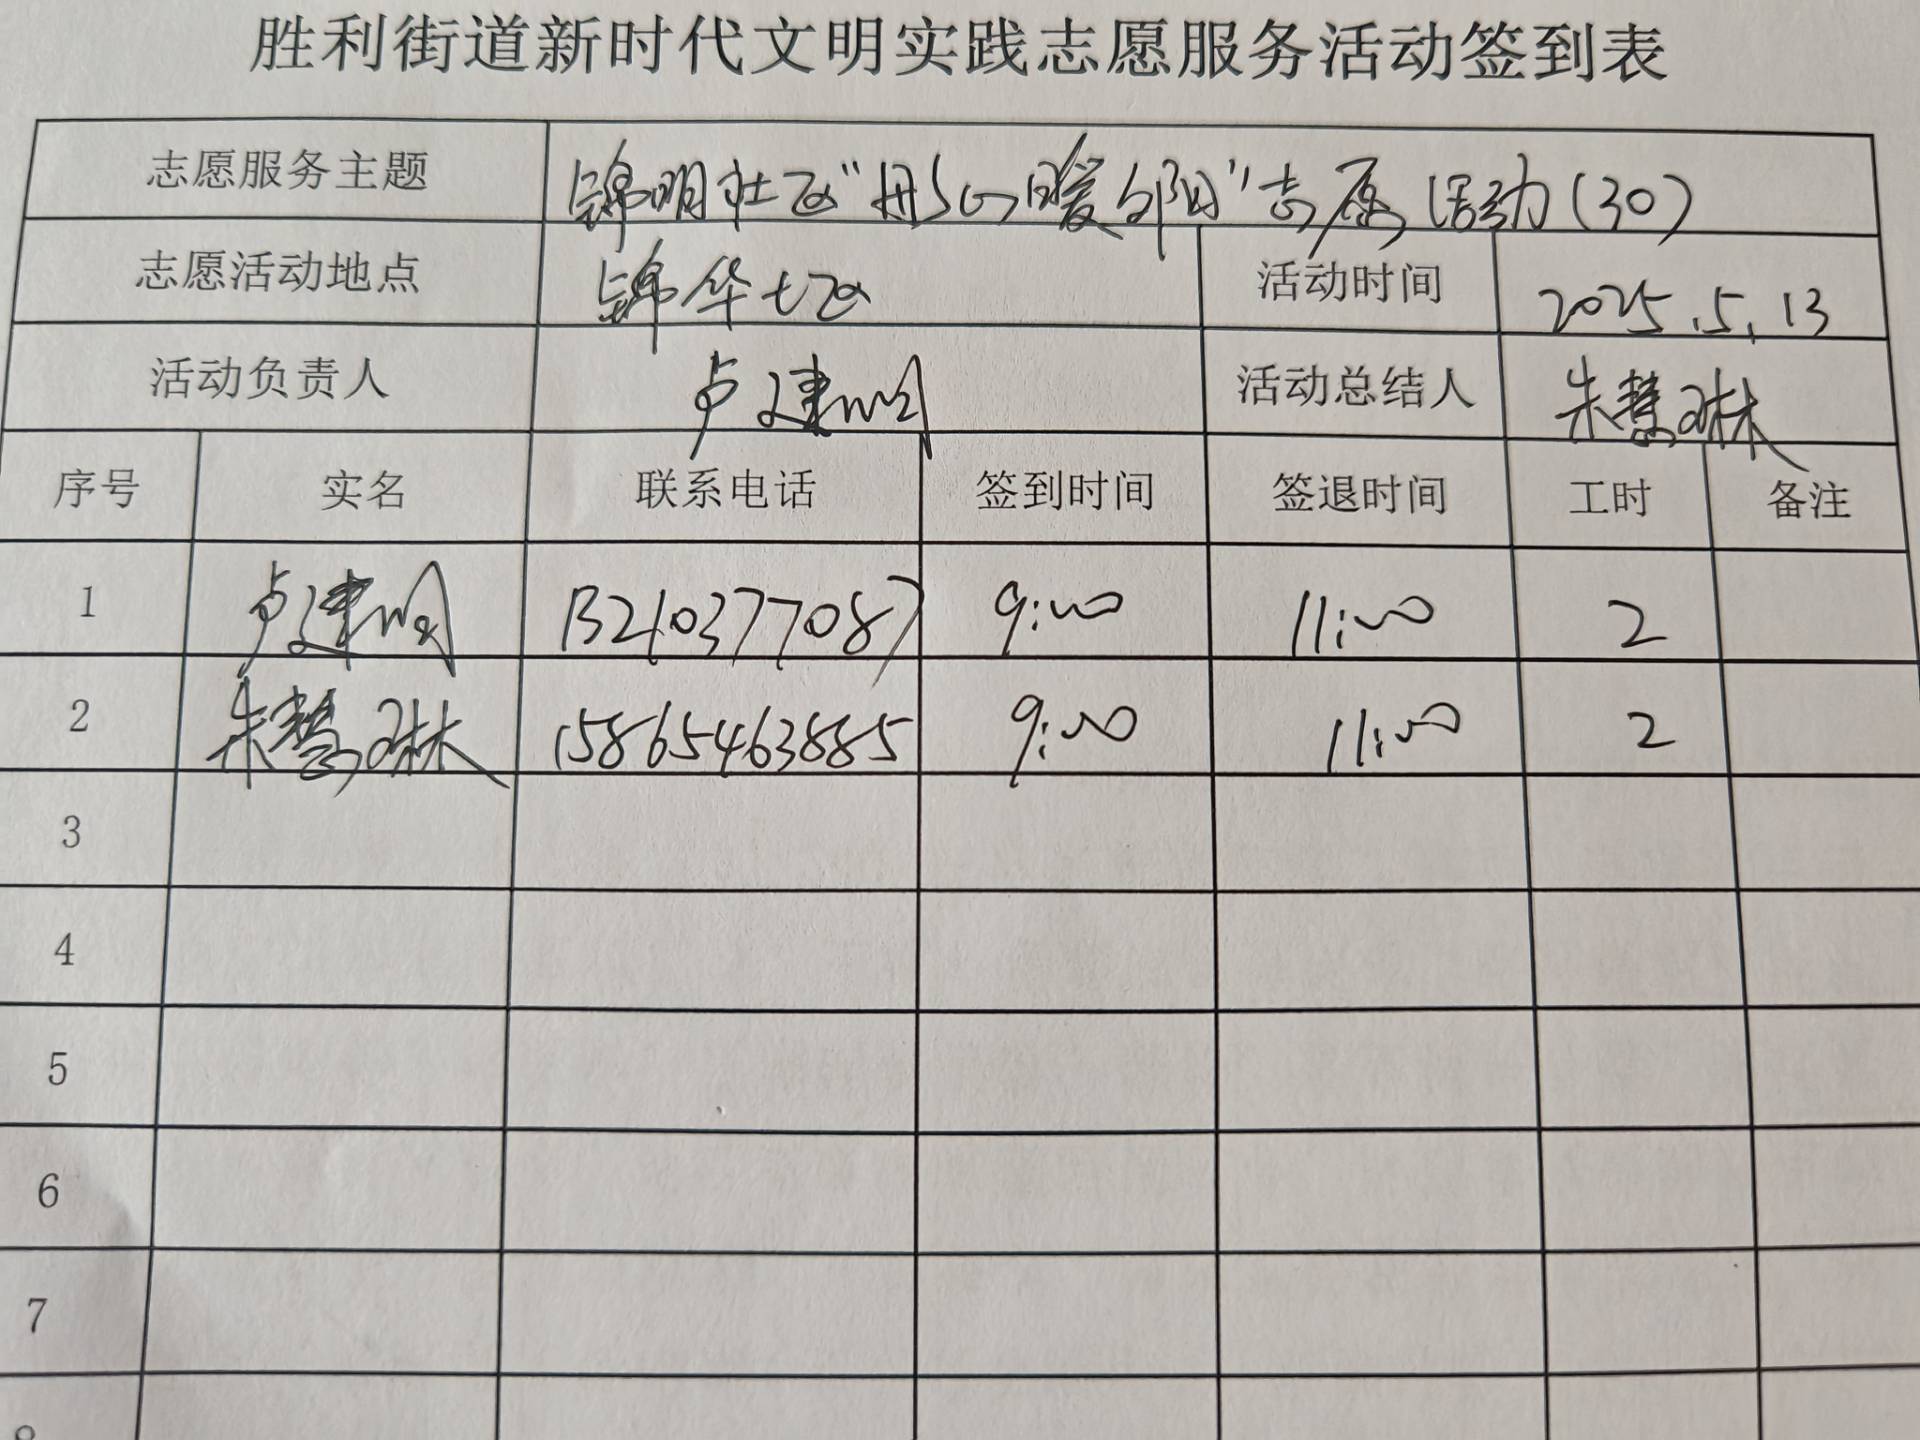 胜利街道新时代文明实践志愿服务活动签到表
志愿服务主题 锦明社区“丹心暖夕阳”志愿活动(30)
志愿活动地点 锦华七区 活动时间 2025.5.13
活动负责人 卢建明 活动总结人 朱慧琳
序号 实名 联系电话 签到时间 签退时间 工时 备注
1 卢建明 13210377087 9:00 11:00 2
2 朱慧琳 15865463885 9:00 11:00 2
3
4
5
6
7
8